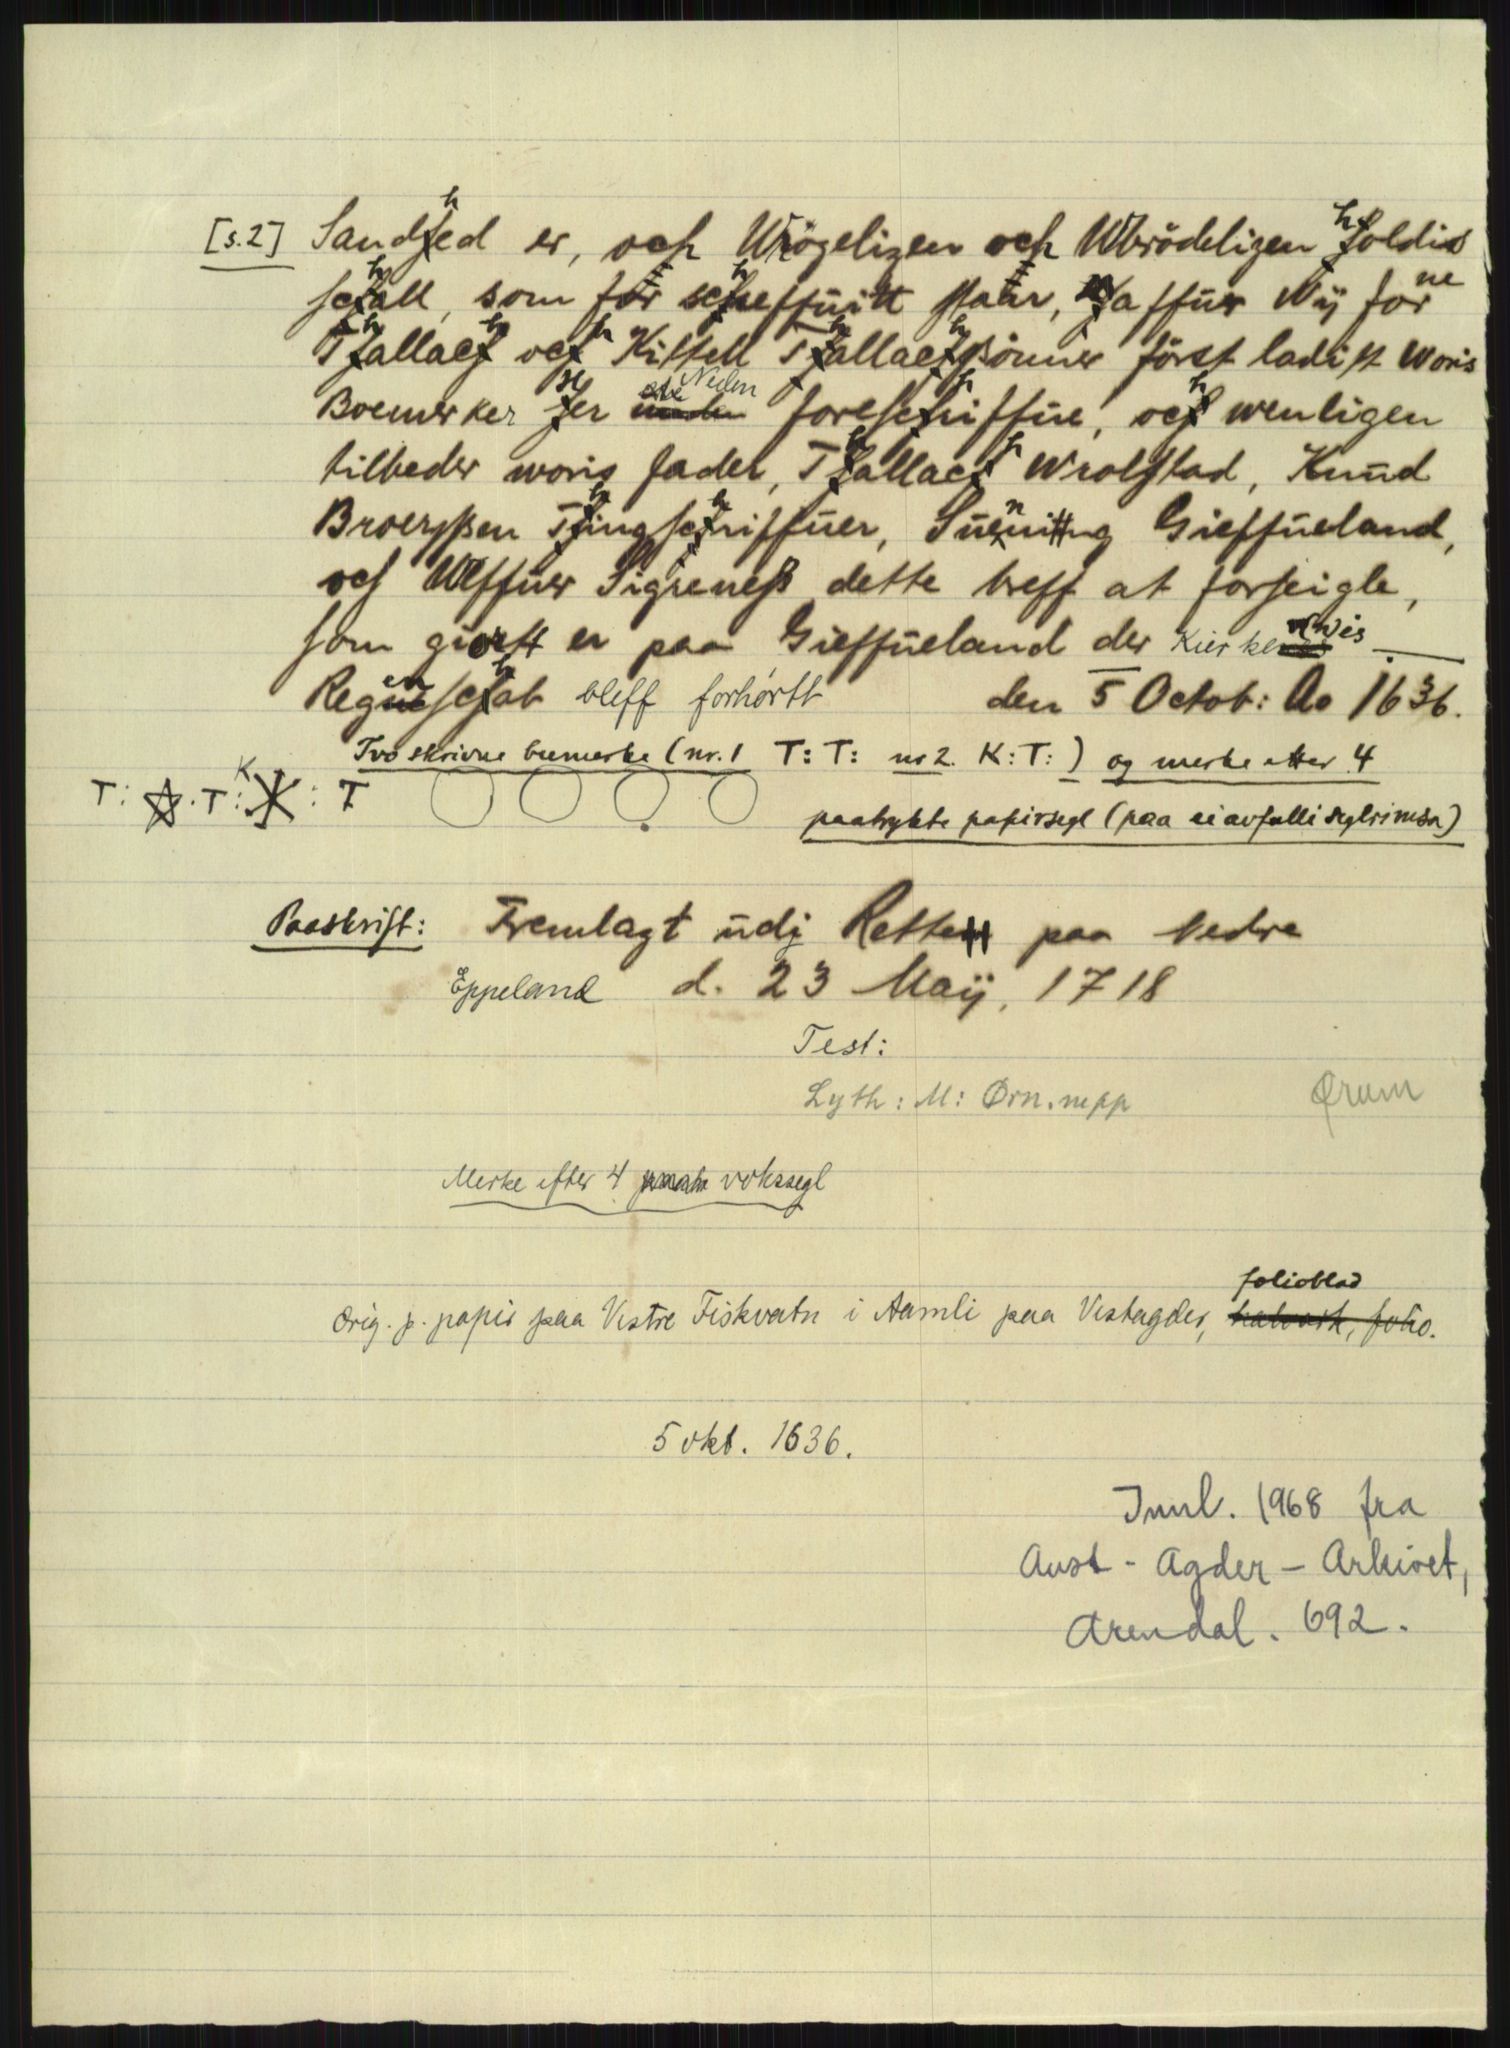 [s.2] Sandhed er, och Urögeligen och Ubrödeligen holdis
schall, som for schreffuitt staar, haffuer Wij forne
Thallach och Kittell Thallachsönner först ladist woris
Boemerker her Neden foreschriffue, och wenligen
tilbeder woris fader, Thallach Wrolstad, Knud
Broerssen Thingschriffuer, Suenning Gieffueland,
och Ulffuer Sigreness dette breff at forseigle,
som giortt er paa Gieffueland der Kierkewis
Regenschab bleff forhørtt den 5 Octob: Ao 1636.
Tvo skrivne bumerke (nr. 1 T: T: nr 2. K: T: ) og merke etter 4
T: . T: K : T
paatrykte papirsegl (paa ei avfalli seglrimsa)
Paaskrift: Fremlagt udj Retten paa Nedre
Eppeland d. 23 Maij, 1718
Test:
Lyth: M: Ørn. mpp Ørum
Merke efter 4 vokssegl
folioblad
Orig. p. papir paa Vestre Fiskvatn i Aamli paa Vestagder, kalvark, folio.
5 okt. 1636.
Innl. 1968 fra
Aust-Agder-Arkivet,
Arendal. 692.